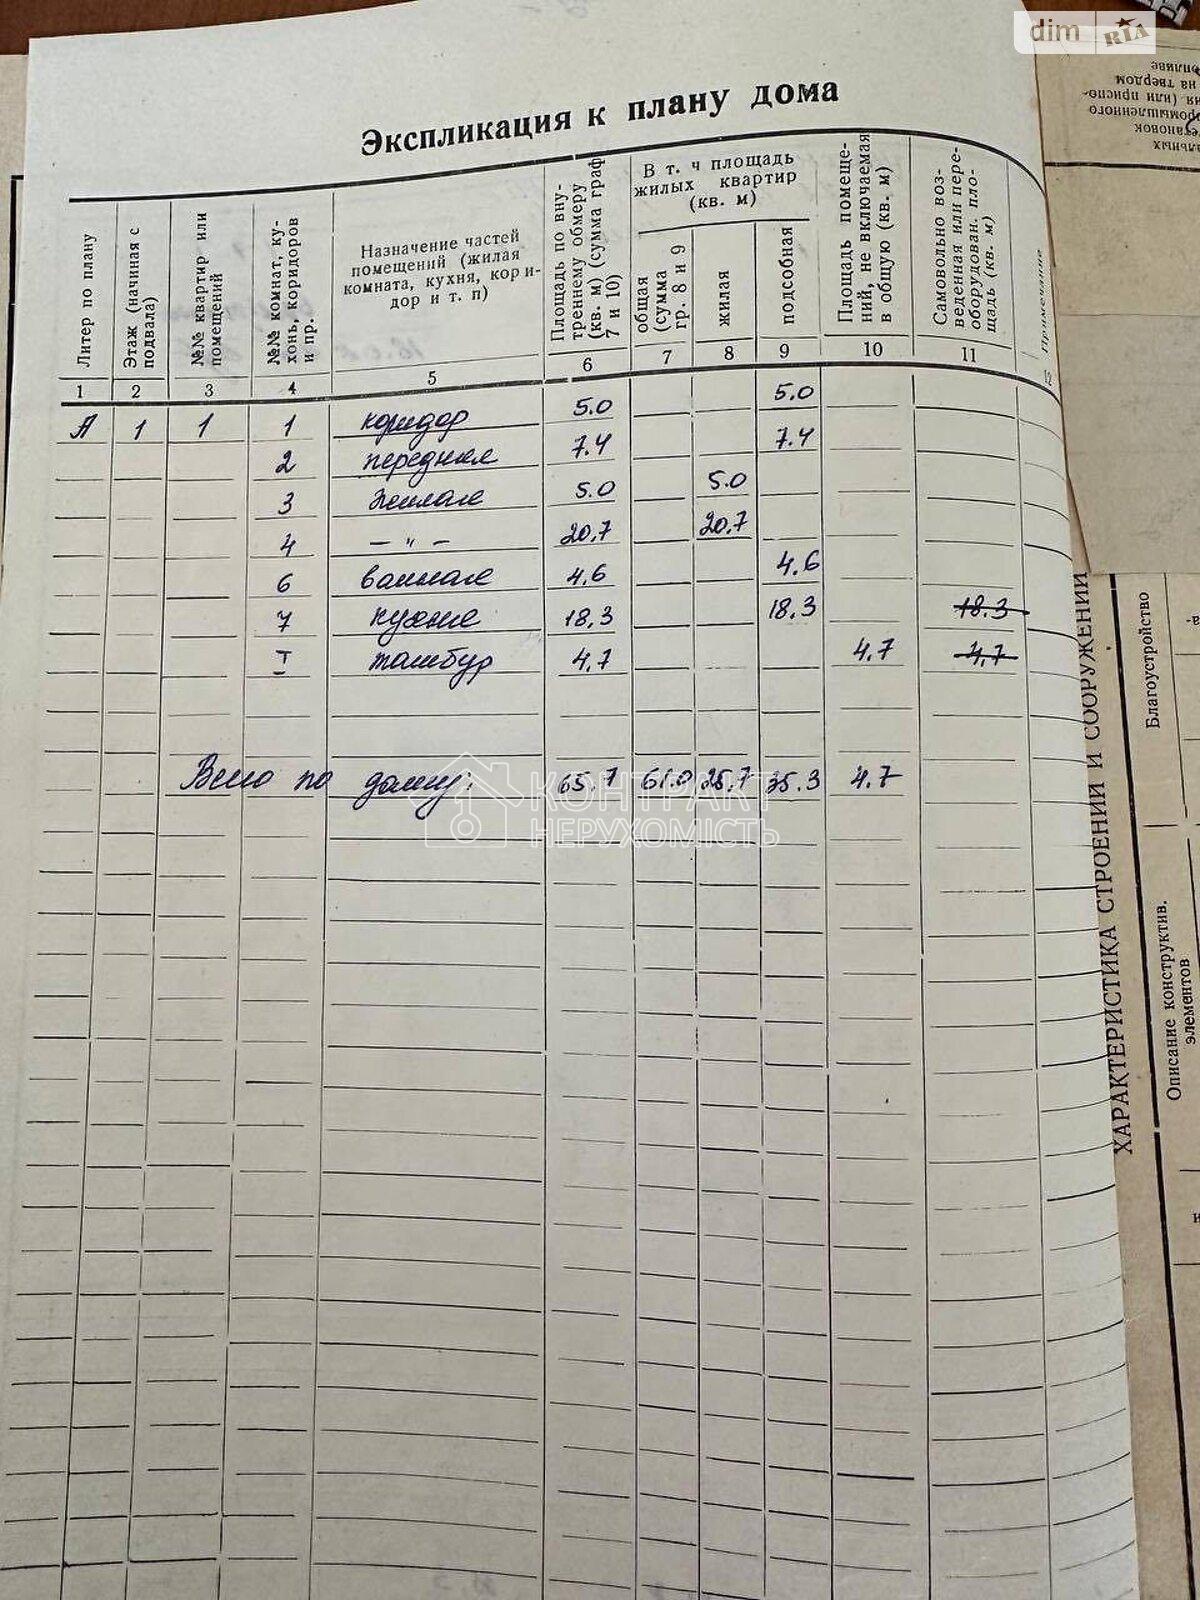 dim RIA
Экспликация к плану дома
Литер по плану
Этаж (начиная с
подвала)
№№ квартир или
помещений
№№ комнат, ку-
хонь, коридоров
и пр.
Назначение частей
помещений (жилая
комната, кухня, кори-
дор и т. п)
Площадь по вну-
треннему обмеру
(кв. м) (сумма граф
7 и 10)
В т. ч площадь
жилых квартир
(кв. м)
общая
(сумма
гр. 8 и 9
жилая
подсобная
Площадь помеще-
ний, не включаемая
в общую (кв. м)
Самовольно воз-
веденная или пере-
оборудован. пло-
щадь (кв. м)
Примечание
1 2 3 4 5 6 7 8 9 10 11 12
А 1 1 1 коридор 5.0 5.0
2 передняя 7.4 7.4
3 жилая 5.0 5.0
4 — „ — 20,7 20,7
6 ванная 4.6 4.6
7 кухня 18,3 18.3 18.3
I тамбур 4,7 4.7 4,7
Всего по дому: 65,7 61.0 25,7 35.3 4.7
КОНТРАКТ
НЕРУХОМІСТЬ
ХАРАКТЕРИСТИКА СТРОЕНИИ И СООРУЖЕНИИ
Благоустройство
Описание конструктив.
элементов